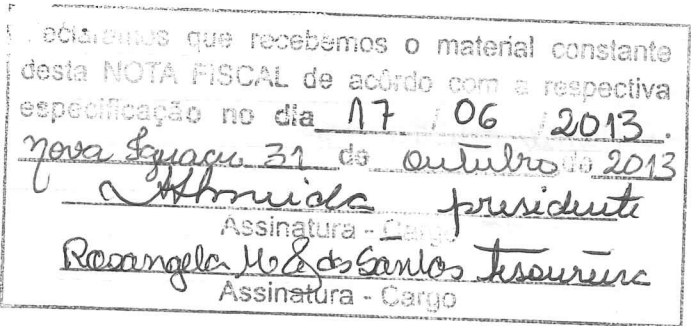 Declaramos que recebemos o material constante
desta NOTA FISCAL de acôrdo com a respectiva
especificação no dia 17 / 06 / 2013.
Nova Iguaçu 31 de outubro de 2013
Almeida presidente
Assinatura - Cargo
Rosangela dos Santos tesoureira
Assinatura - Cargo